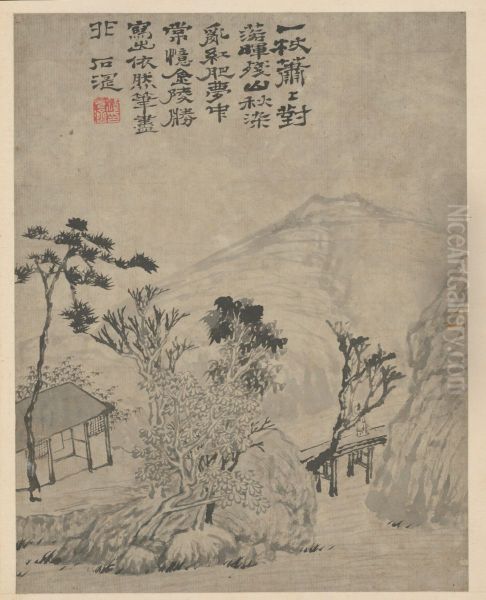 一杖蕭〻對
落暉殘山秋染
亂紅肥夢中
常憶金陵勝
寫出依然筆盡
非 石濤
NiceArtGallery.com